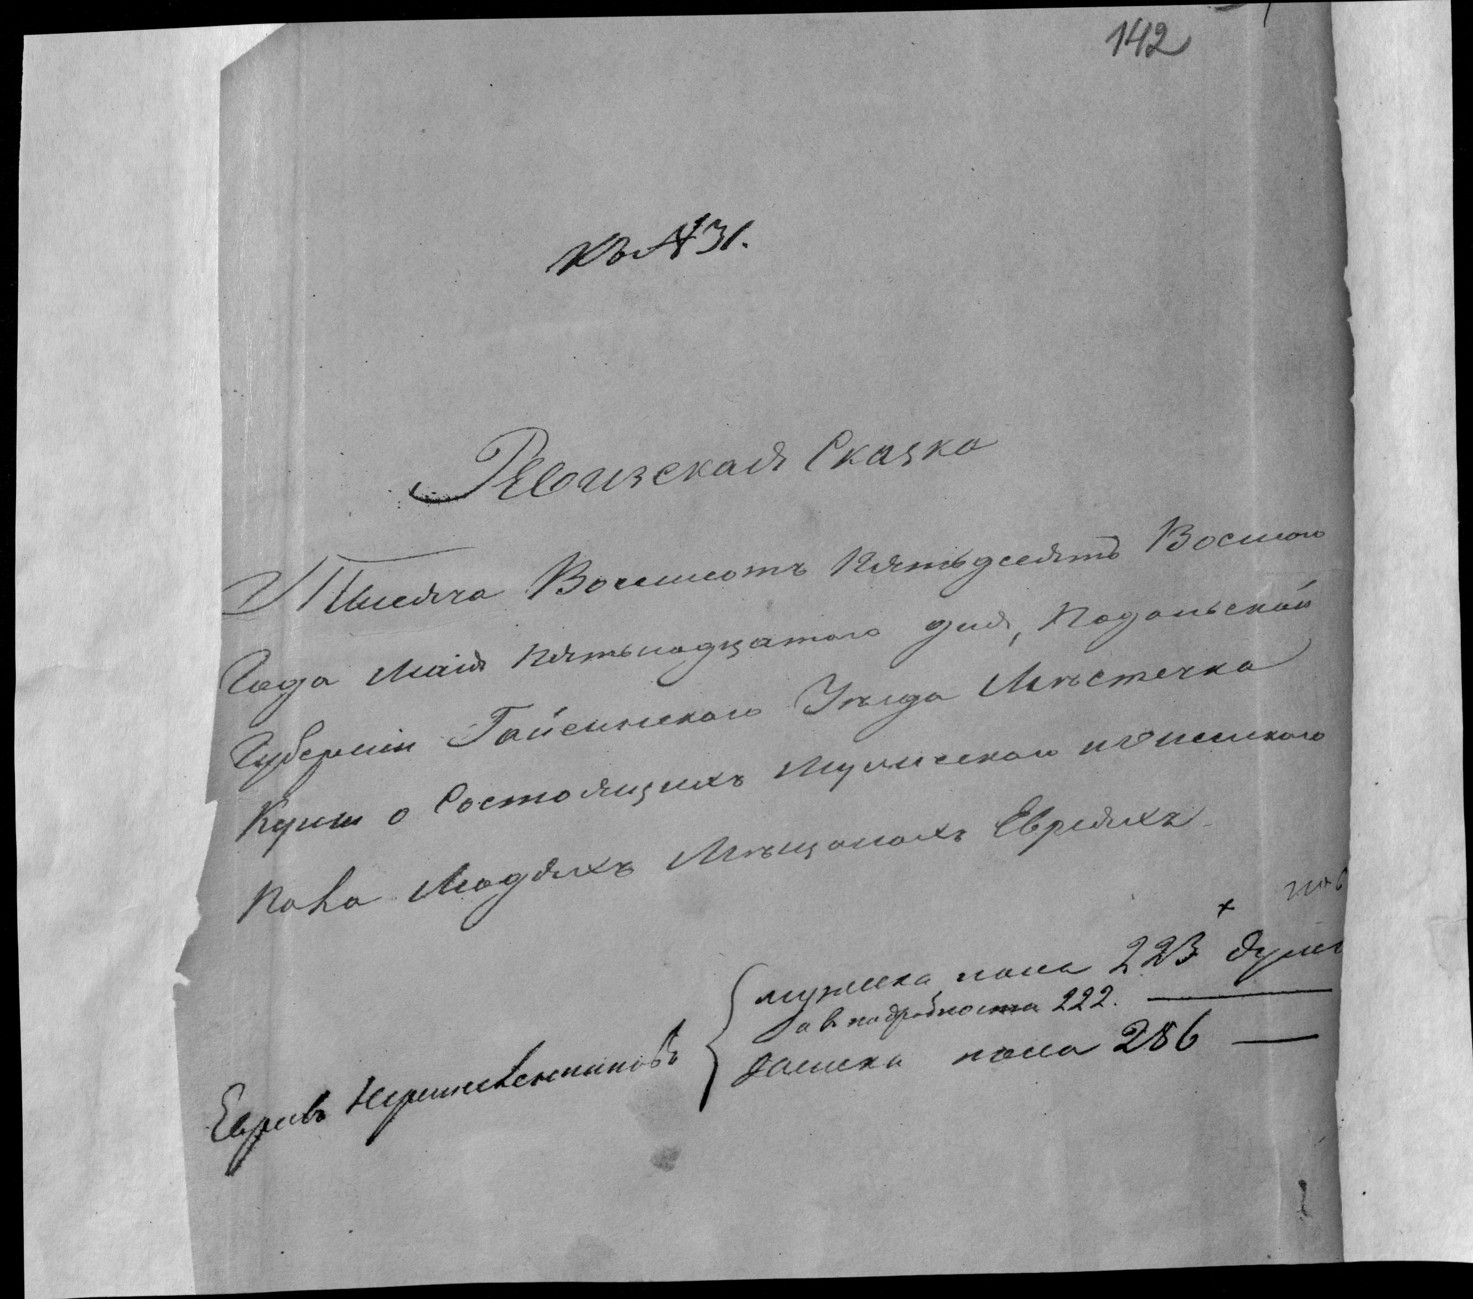 142
Къ № 31.
Ревизская Сказка
Тысяча Восемсотъ Пятьдесятъ Восмого
Года Маія пятьнадцатого дня, Подольской
Губерніи Гайсинского Уѣзда Мѣстечка
Куны о Состоящихъ Мужескаго и Женскаго
Пола Людяхъ Мѣщанахъ Евреяхъ
мужска пола 223 душъ
а в подробности 222.
Евреевъ Христіанъ
женска пола 286